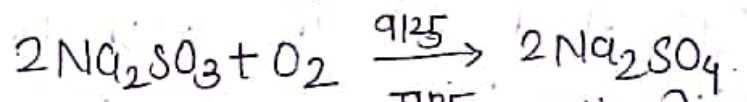 2Na₂SO₃ + O₂ → 2Na₂SO₄